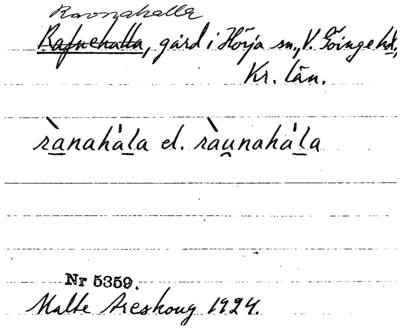 Ravnahalla
Rafnehalla, gård i Hörja sn, V. Göinge hd,
Kr. län.
rànahála el. ràu̯nahála
Nr 5359.
Malte Areskoug 1924.